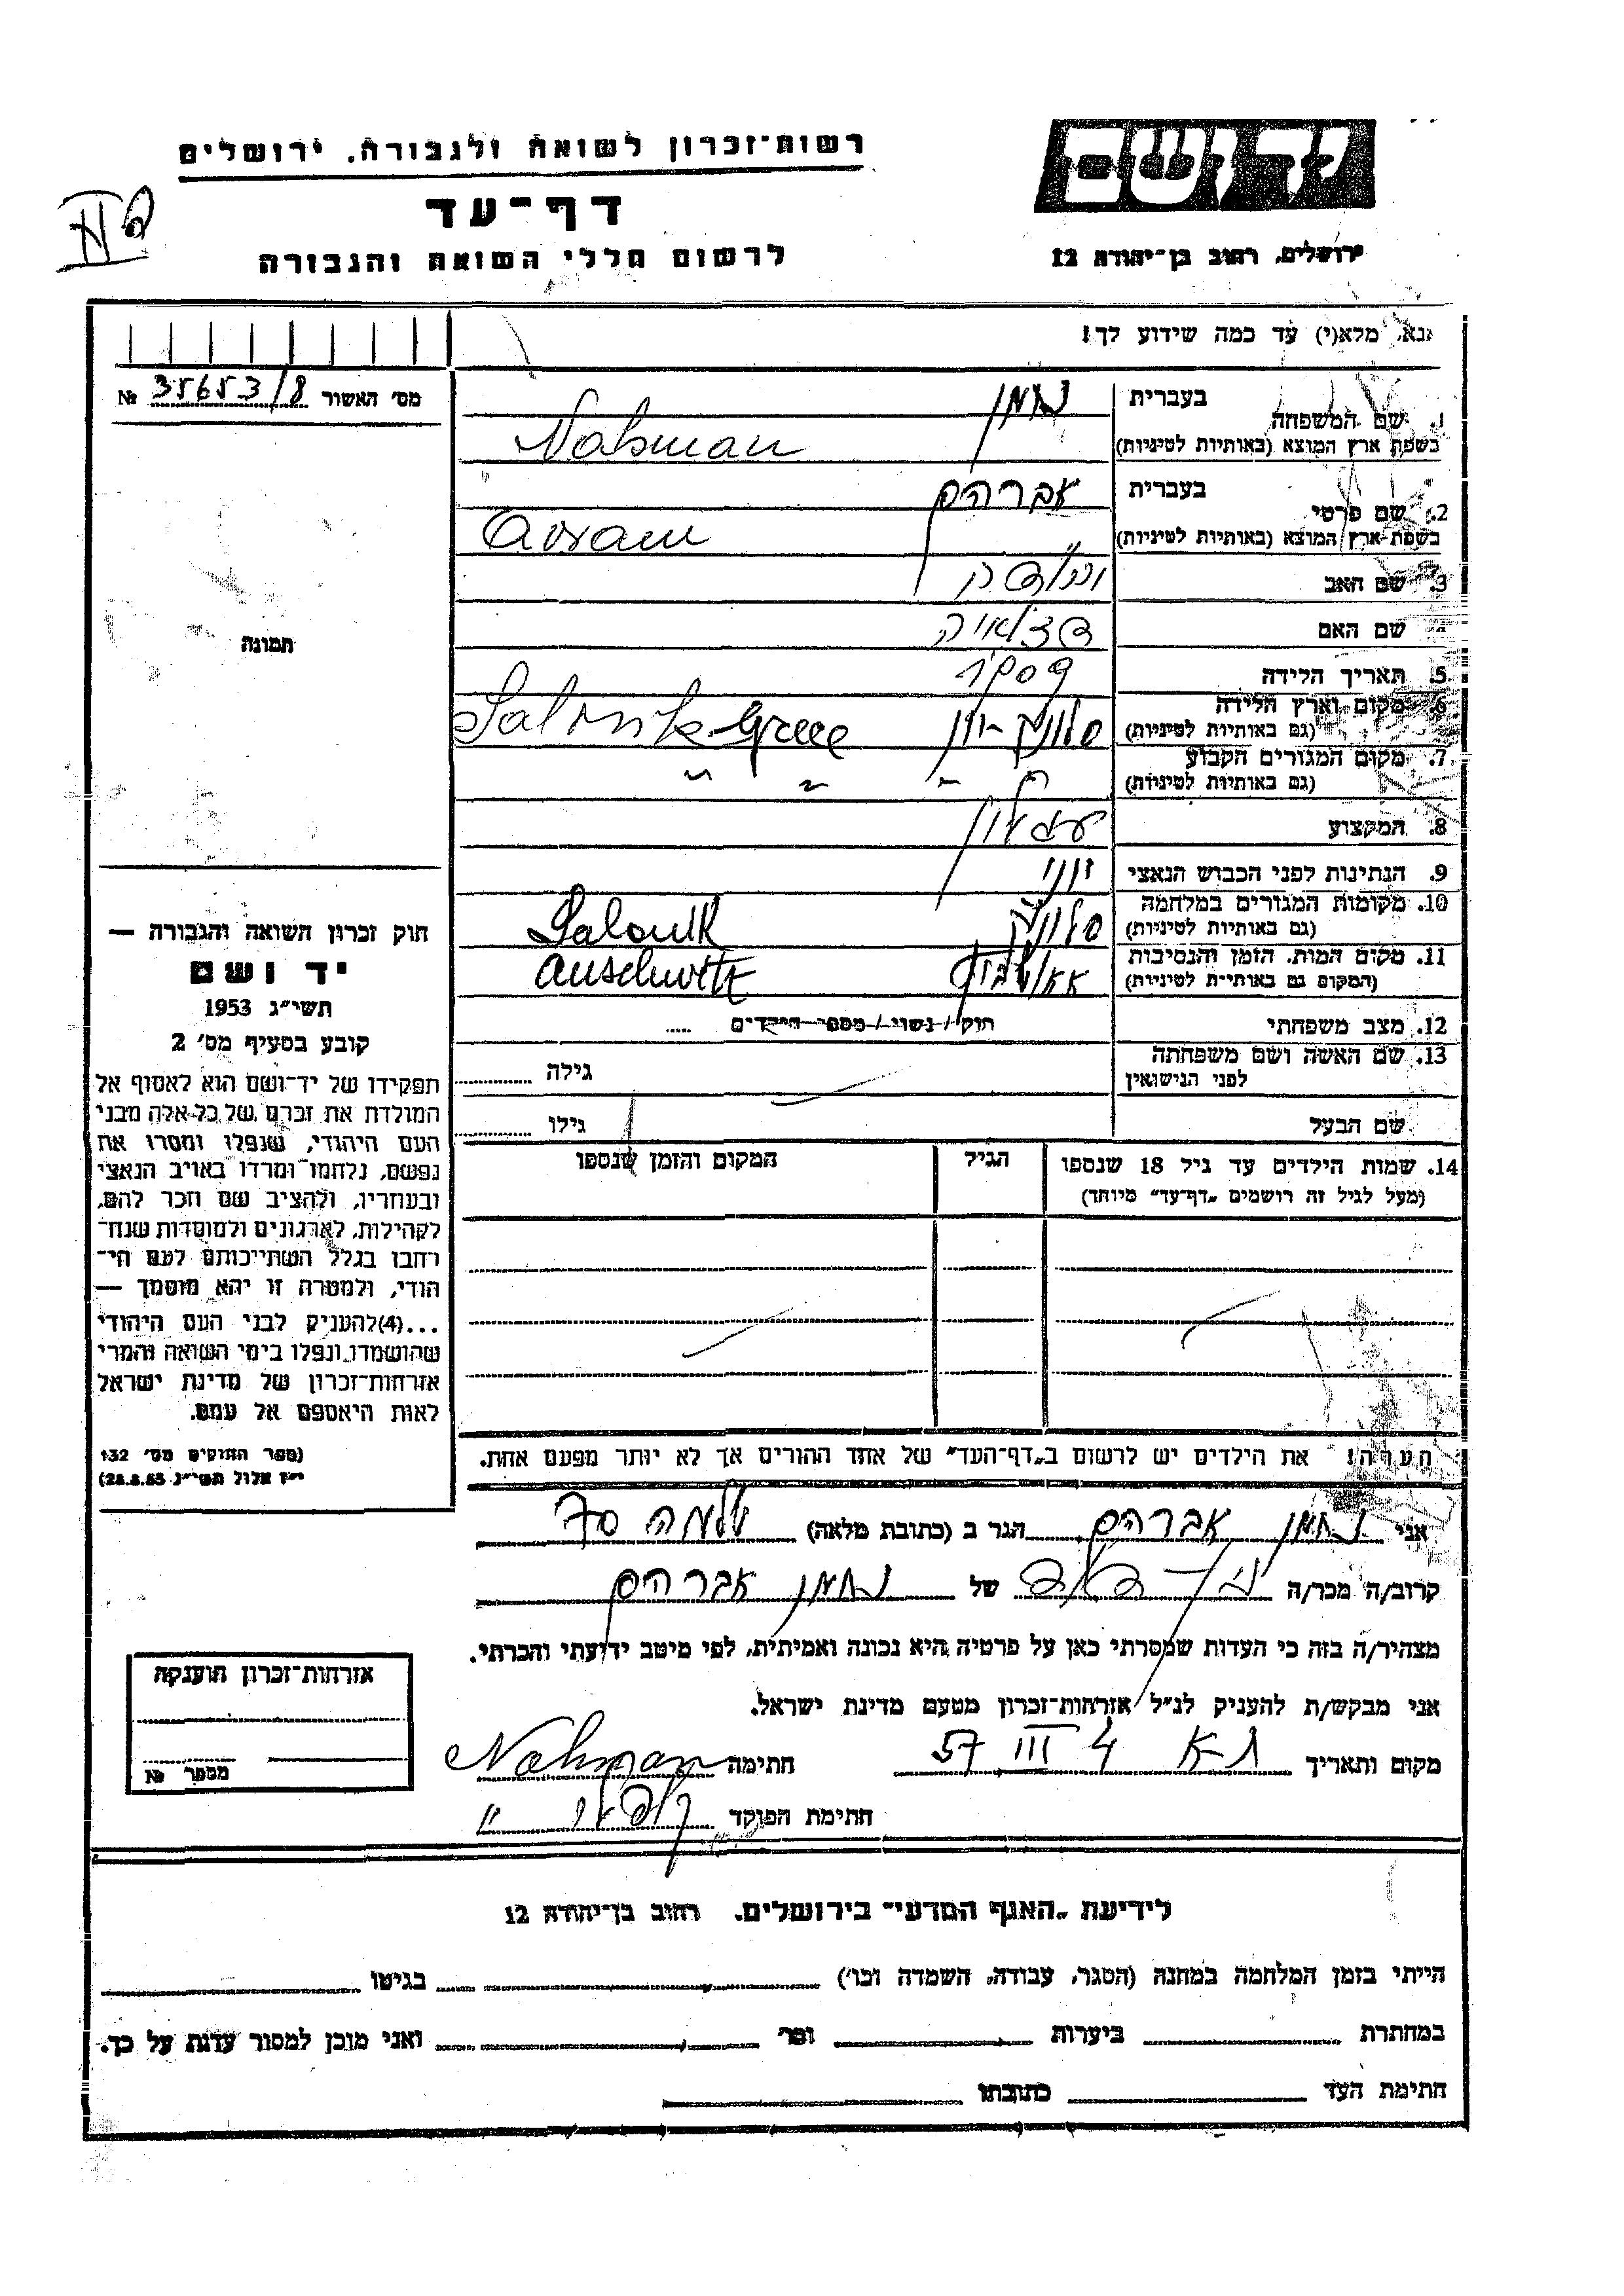 יד ושם
ירושלים, רחוב בן־יהודה 12
רשות־זכרון לשואה ולגבורה, ירושלים
דף־עד
לרשום חללי השואה והגבורה
נא, מלא(י) עד כמה שידוע לך!
מס׳ האשור 35653/8 №
1. שם המשפחה בעברית נחמן
בשפת ארץ המוצא (באותיות לטיניות) Nahman
2. שם פרטי בעברית אברהם
בשפת ארץ המוצא (באותיות לטיניות) Avram
3. שם האב
שם האם
5. תאריך הלידה
6. מקום וארץ הלידה
(גם באותיות לטיניות) סלוניקי יון Salonik Greece
7. מקום המגורים הקבוע
(גם באותיות לטיניות) " " " "
8. המקצוע
9. הנתינות לפני הכבוש הנאצי יוני
10. מקומות המגורים במלחמה
(גם באותיות לטיניות) סלוניקי Salonik
11. מקום המות, הזמן והנסיבות
(המקום גם באותיות לטיניות) Auschwitz
12. מצב משפחתי רוק / נשוי / מספר הילדים .....
13. שם האשה ושם משפחתה
לפני הנישואין גילה
שם הבעל גילו
14. שמות הילדים עד גיל 18 שנספו הגיל המקום והזמן שנספו
(מעל לגיל זה רושמים „דף־עד” מיוחד)
הערה! את הילדים יש לרשום ב„דף־העד” של אחד ההורים אך לא יותר מפעם אחת.
תמונה
חוק זכרון השואה והגבורה —
יד ושם
תשי״ג 1953
קובע בסעיף מס׳ 2
תפקידו של יד־ושם הוא לאסוף אל
המולדת את זכרם של כל אלה מבני
העם היהודי, שנפלו ומסרו את
נפשם, נלחמו ומרדו באויב הנאצי
ובעוזריו, ולהציב שם וזכר להם,
לקהילות, לארגונים ולמוסדות שנח־
רחבו בגלל השתייכותם לעם הי־
הודי, ולמטרה זו יהא מוסמך —
...(4)להעניק לבני העם היהודי
שהושמדו ונפלו בימי השואה והמרי
אזרחות־זכרון של מדינת ישראל
לאות היאספם אל עמם.
(ספר החוקים מס׳ 132
י״ז אלול תשי״ג 28.8.53)
אני נחמן אברהם הגר ב (כתובת מלאה) שלמה 70
קרוב/ה מכר/ה של נחמן אברהם
מצהיר/ה בזה כי העדות שמסרתי כאן על פרטיה היא נכונה ואמיתית, לפי מיטב ידיעתי והכרתי.
אני מבקש/ת להעניק לנ״ל אזרחות־זכרון מטעם מדינת ישראל.
מקום ותאריך ת-א 4 III 57 חתימה Nahman
חתימת הפוקד
אזרחות־זכרון הוענקה
מספר №
לידיעת „האגף המדעי” בירושלים, רחוב בן־יהודה 12
הייתי בזמן המלחמה במחנה (הסגר, עבודה, השמדה וכו׳) בגיטו
במחתרת ביערות וכו׳ ואני מוכן למסור עדות על כך.
חתימת העד כתובתו